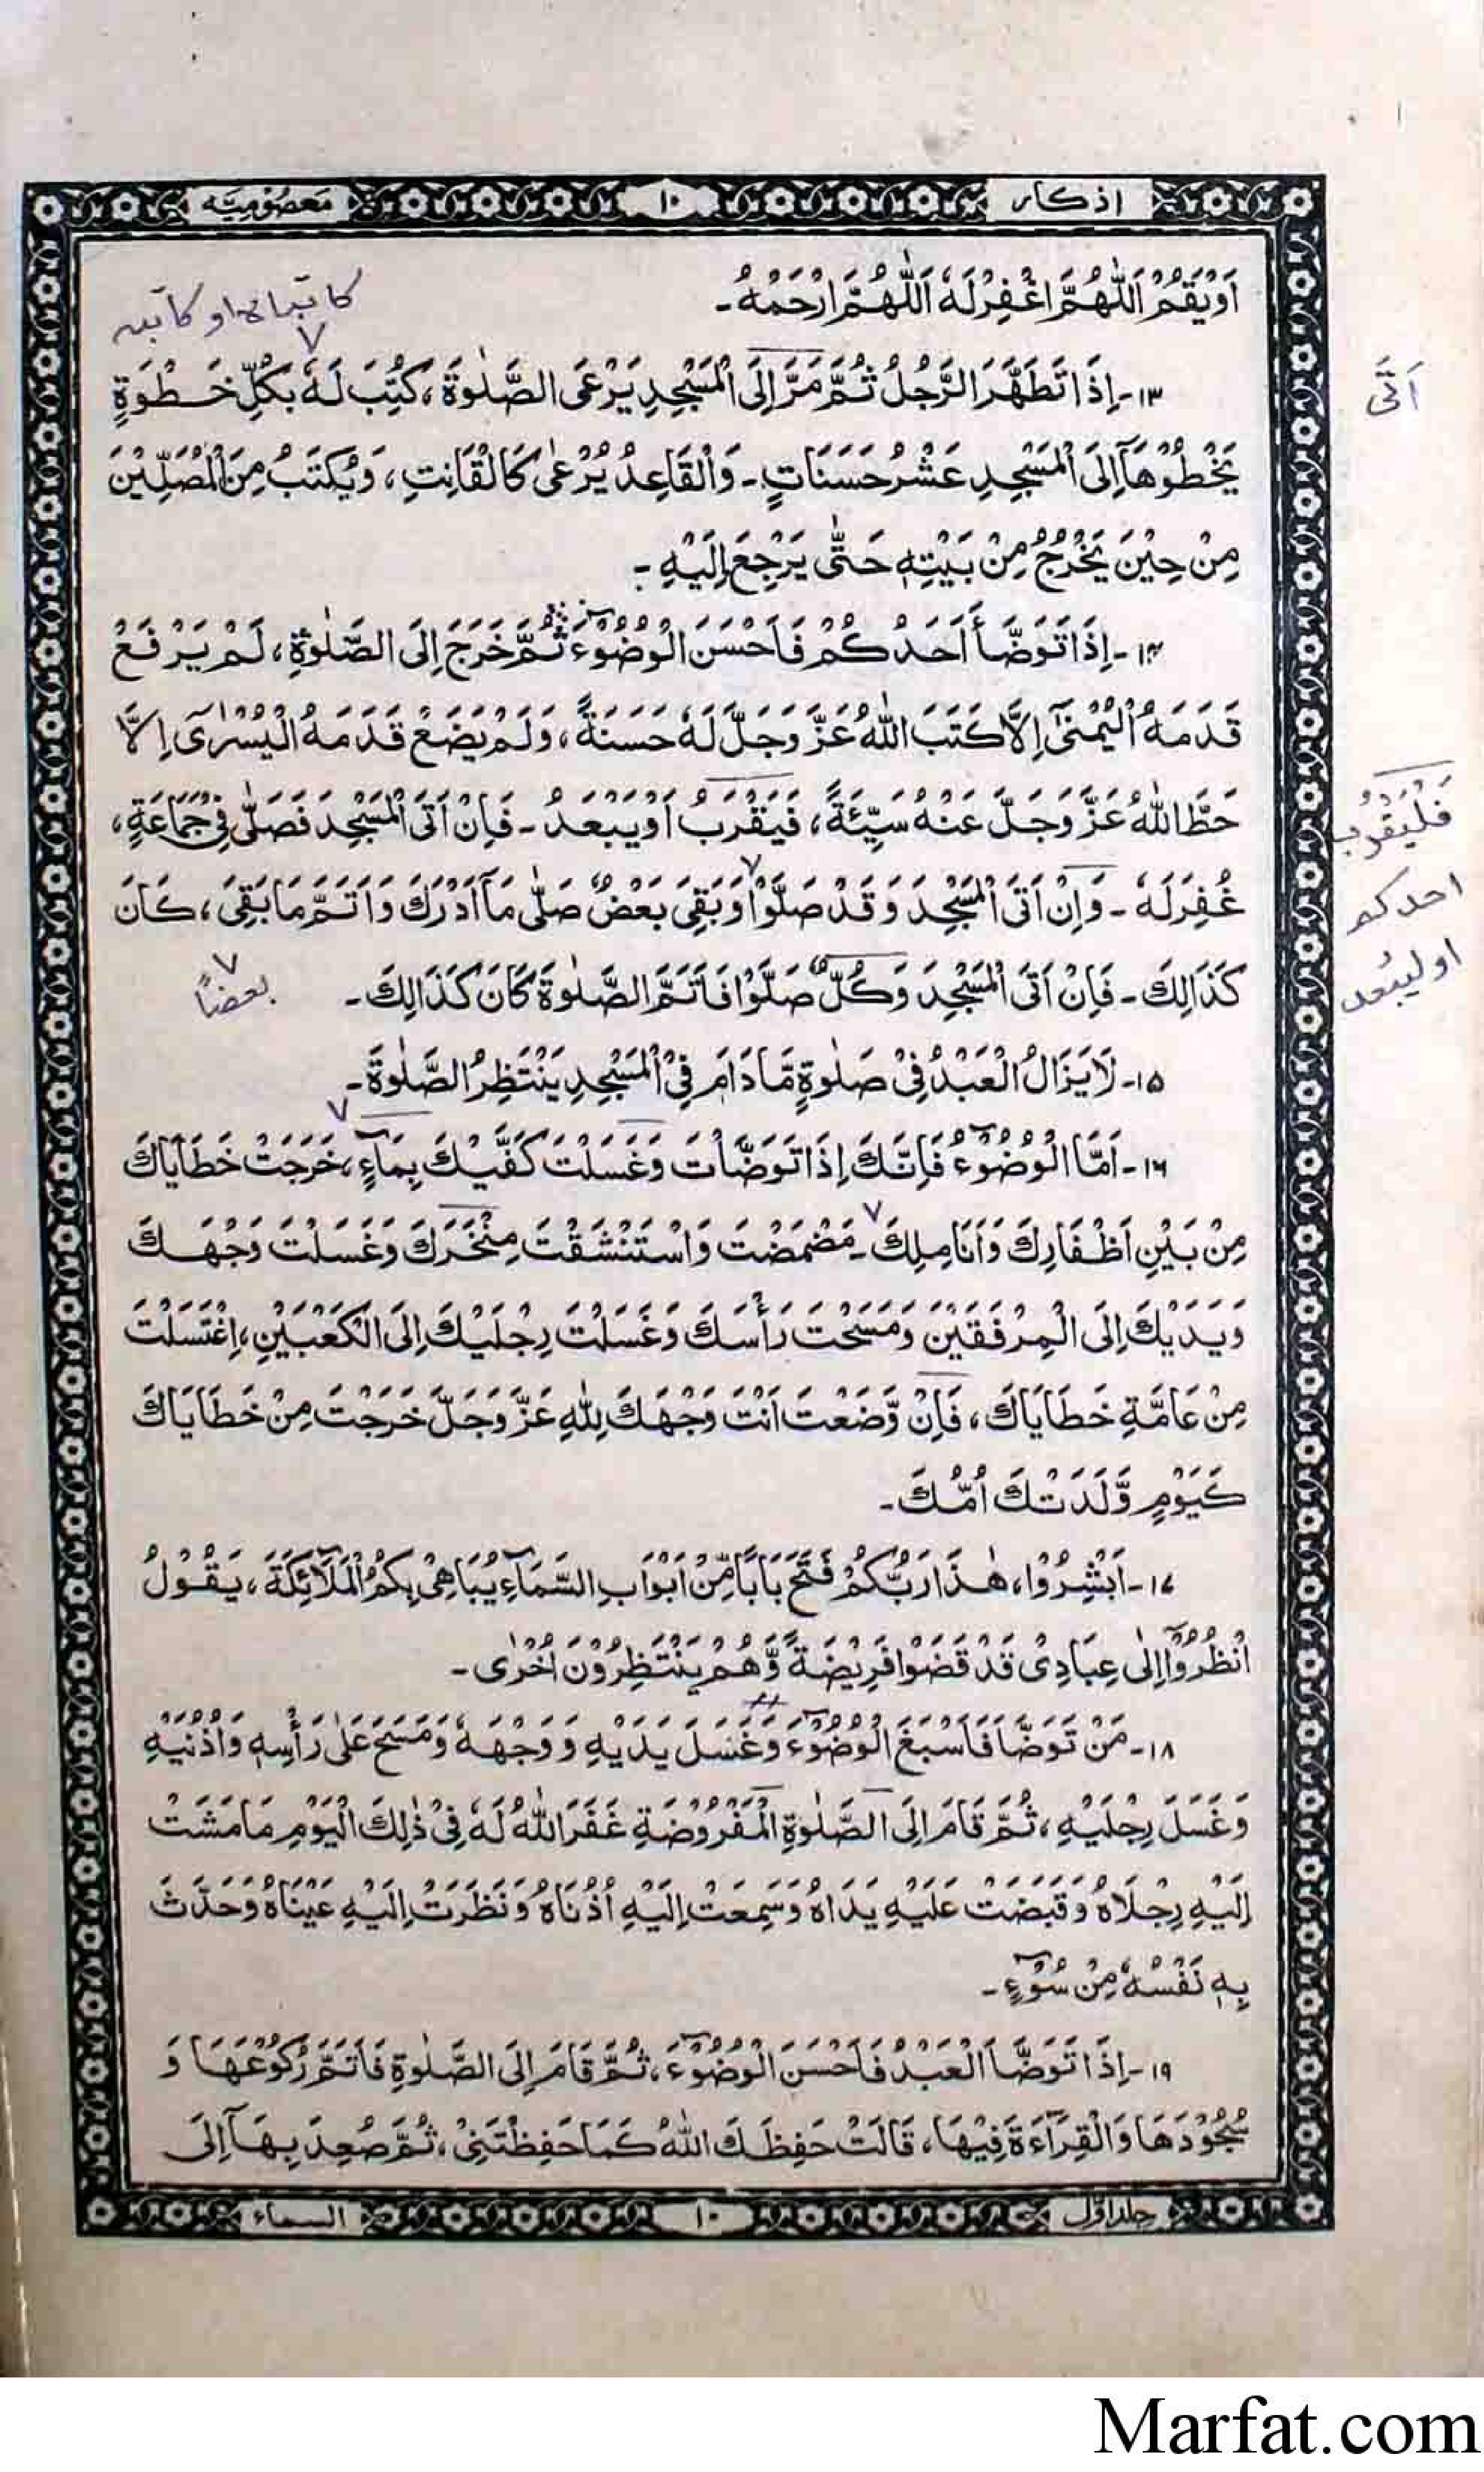 اذكار
١٠
معصوميّه
اَوْ يَقُمْ اَللّٰهُمَّ اغْفِرْ لَهٗ اَللّٰهُمَّ ارْحَمْهُ۔
كاتباه او كاتبه
١٣۔ اِذَا تَطَهَّرَ الرَّجُلُ ثُمَّ مَرَّ اِلَى الْمَسْجِدِ يَرْعَى الصَّلٰوةَ، كُتِبَ لَهٗ بِكُلِّ خَطْوَةٍ
اَتٰى
يَخْطُوْهَآ اِلَى الْمَسْجِدِ عَشْرُ حَسَنَاتٍ۔ وَالْقَاعِدُ يُرْعٰى كَالْقَانِتِ، وَيُكْتَبُ مِنَ الْمُصَلِّيْنَ
مِنْ حِيْنَ يَخْرُجُ مِنْ بَيْتِهٖ حَتّٰى يَرْجِعَ اِلَيْهِ۔
١٤۔ اِذَا تَوَضَّأَ اَحَدُكُمْ فَاَحْسَنَ الْوُضُوْٓءَ ثُمَّ خَرَجَ اِلَى الصَّلٰوةِ، لَمْ يَرْفَعْ
قَدَمَهُ الْيُمْنٰىٓ اِلَّا كَتَبَ اللّٰهُ عَزَّ وَجَلَّ لَهٗ حَسَنَةً، وَلَمْ يَضَعْ قَدَمَهُ الْيُسْرٰىٓ اِلَّا
حَطَّ اللّٰهُ عَزَّ وَجَلَّ عَنْهُ سَيِّئَةً، فَيَقْرَبُ اَوْ يَبْعَدُ۔ فَاِنْ اَتَى الْمَسْجِدَ فَصَلّٰى فِيْ جَمَاعَةٍ،
فَلْيَقْرُب
احدكم
او ليبعد
غُفِرَ لَهٗ۔ وَاِنْ اَتَى الْمَسْجِدَ وَقَدْ صَلَّوْا وَبَقِيَ بَعْضٌ صَلّٰى مَآ اَدْرَكَ وَاَتَمَّ مَا بَقِيَ، كَانَ
كَذَالِكَ۔ فَاِنْ اَتَى الْمَسْجِدَ وَكُلٌّ صَلَّوْا فَاَتَمَّ الصَّلٰوةَ كَانَ كَذَالِكَ۔
بعضاً
١٥۔ لَا يَزَالُ الْعَبْدُ فِيْ صَلٰوةٍ مَّا دَامَ فِي الْمَسْجِدِ يَنْتَظِرُ الصَّلٰوةَ۔
١٦۔ اَمَّا الْوُضُوْٓءُ فَاِنَّكَ اِذَا تَوَضَّاْتَ وَغَسَلْتَ كَفَّيْكَ بِمَآءٍ، خَرَجَتْ خَطَايَاكَ
مِنْ بَيْنِ اَظْفَارِكَ وَاَنَامِلِكَ۔ مَضْمَضْتَ وَاسْتَنْشَقْتَ مِنْخَرَكَ وَغَسَلْتَ وَجْهَكَ
وَيَدَيْكَ اِلَى الْمِرْفَقَيْنِ وَمَسَحْتَ رَأْسَكَ وَغَسَلْتَ رِجْلَيْكَ اِلَى الْكَعْبَيْنِ، اِغْتَسَلْتَ
مِنْ عَامَّةِ خَطَايَاكَ، فَاِنْ وَّضَعْتَ اَنْتَ وَجْهَكَ لِلّٰهِ عَزَّ وَجَلَّ خَرَجْتَ مِنْ خَطَايَاكَ
كَيَوْمٍ وَّلَدَتْكَ اُمُّكَ۔
١٧۔ اَبْشِرُوْا، هٰذَا رَبُّكُمْ فَتَحَ بَابًا مِّنْ اَبْوَابِ السَّمَآءِ يُبَاهِيْ بِكُمُ الْمَلَآئِكَةَ، يَقُوْلُ
انْظُرُوْٓا اِلٰى عِبَادِيْ قَدْ قَضَوْا فَرِيْضَةً وَّهُمْ يَنْتَظِرُوْنَ اُخْرٰى۔
١٨۔ مَنْ تَوَضَّأَ فَاَسْبَغَ الْوُضُوْٓءَ وَغَسَلَ يَدَيْهِ وَوَجْهَهٗ وَمَسَحَ عَلٰى رَأْسِهٖ وَاُذُنَيْهِ
وَغَسَلَ رِجْلَيْهِ، ثُمَّ قَامَ اِلَى الصَّلٰوةِ الْمَفْرُوْضَةِ غَفَرَ اللّٰهُ لَهٗ فِيْ ذٰلِكَ الْيَوْمِ مَا مَشَتْ
اِلَيْهِ رِجْلَاهُ وَقَبَضَتْ عَلَيْهِ يَدَاهُ وَسَمِعَتْ اِلَيْهِ اُذُنَاهُ وَنَظَرَتْ اِلَيْهِ عَيْنَاهُ وَحَدَّثَ
بِهٖ نَفْسُهٗ مِنْ سُوْٓءٍ۔
١٩۔ اِذَا تَوَضَّأَ الْعَبْدُ فَاَحْسَنَ الْوُضُوْٓءَ، ثُمَّ قَامَ اِلَى الصَّلٰوةِ فَاَتَمَّ رُكُوْعَهَا وَ
سُجُوْدَهَا وَالْقِرَآءَةَ فِيْهَا، قَالَتْ حَفِظَكَ اللّٰهُ كَمَا حَفِظْتَنِيْ، ثُمَّ صُعِدَ بِهَآ اِلَى
جلد اوّل
١٠
السماء
Marfat.com